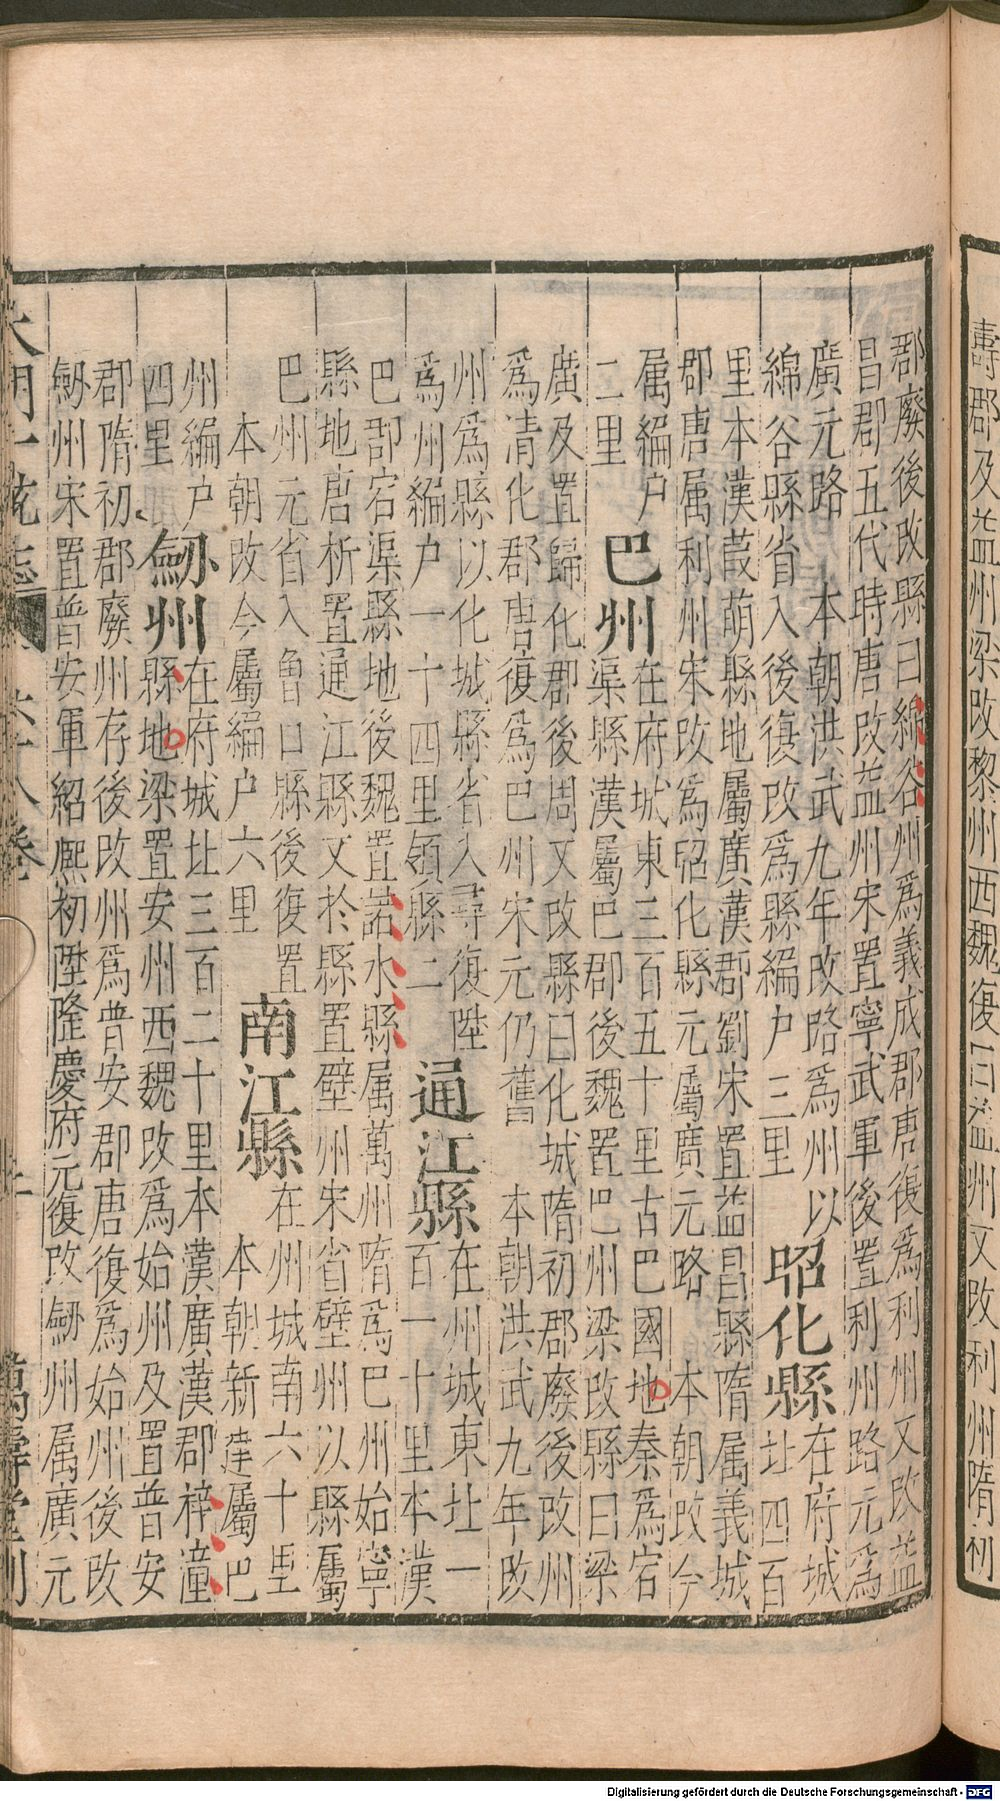 壽郡及益州梁改黎州西魏復曰益州又改利州隋初
郡廢後改縣曰綿谷州爲義成郡唐復爲利州又改益
昌郡五代時唐改益州宋置寧武軍後置利州路元爲
廣元路 本朝洪武九年改路爲州以
綿谷縣省入後復改爲縣編户三里
昭化縣
在府城
北四百
里本漢葭萌縣地屬廣漢郡劉宋置益昌縣隋属義城
郡唐属利州宋改爲昭化縣元屬廣元路 本朝改今
属編户
二里
巴州
在府城東三百五十里古巴國地秦爲宕
渠縣漢屬巴郡後魏置巴州梁改縣曰梁
廣及置歸化郡後周又改縣曰化城隋初郡廢後改州
爲清化郡唐復爲巴州宋元仍舊 本朝洪武九年改
州爲縣以化城縣省入尋復陞
爲州編户一十四里領縣二
通江縣
在州城東北一
百一十里本漢
巴郡宕渠縣地後魏置諾水縣属萬州隋爲巴州始寧
縣地唐析置通江縣又於縣置壁州宋省壁州以縣屬
巴州元省入曾口縣後復置
本朝改今屬編户六里
南江縣
在州城南六十里
本朝新建屬巴
州編户
四里
劒州
在府城北三百二十里本漢廣漢郡梓潼
縣地梁置安州西魏改爲始州及置普安
郡隋初郡廢州存後改州爲普安郡唐復爲始州後改
劒州宋置普安軍紹熙初陞隆慶府元復改劒州属廣元
大明一統志 六十八卷 萬壽堂刊
Digitalisierung gefördert durch die Deutsche Forschungsgemeinschaft - DFG